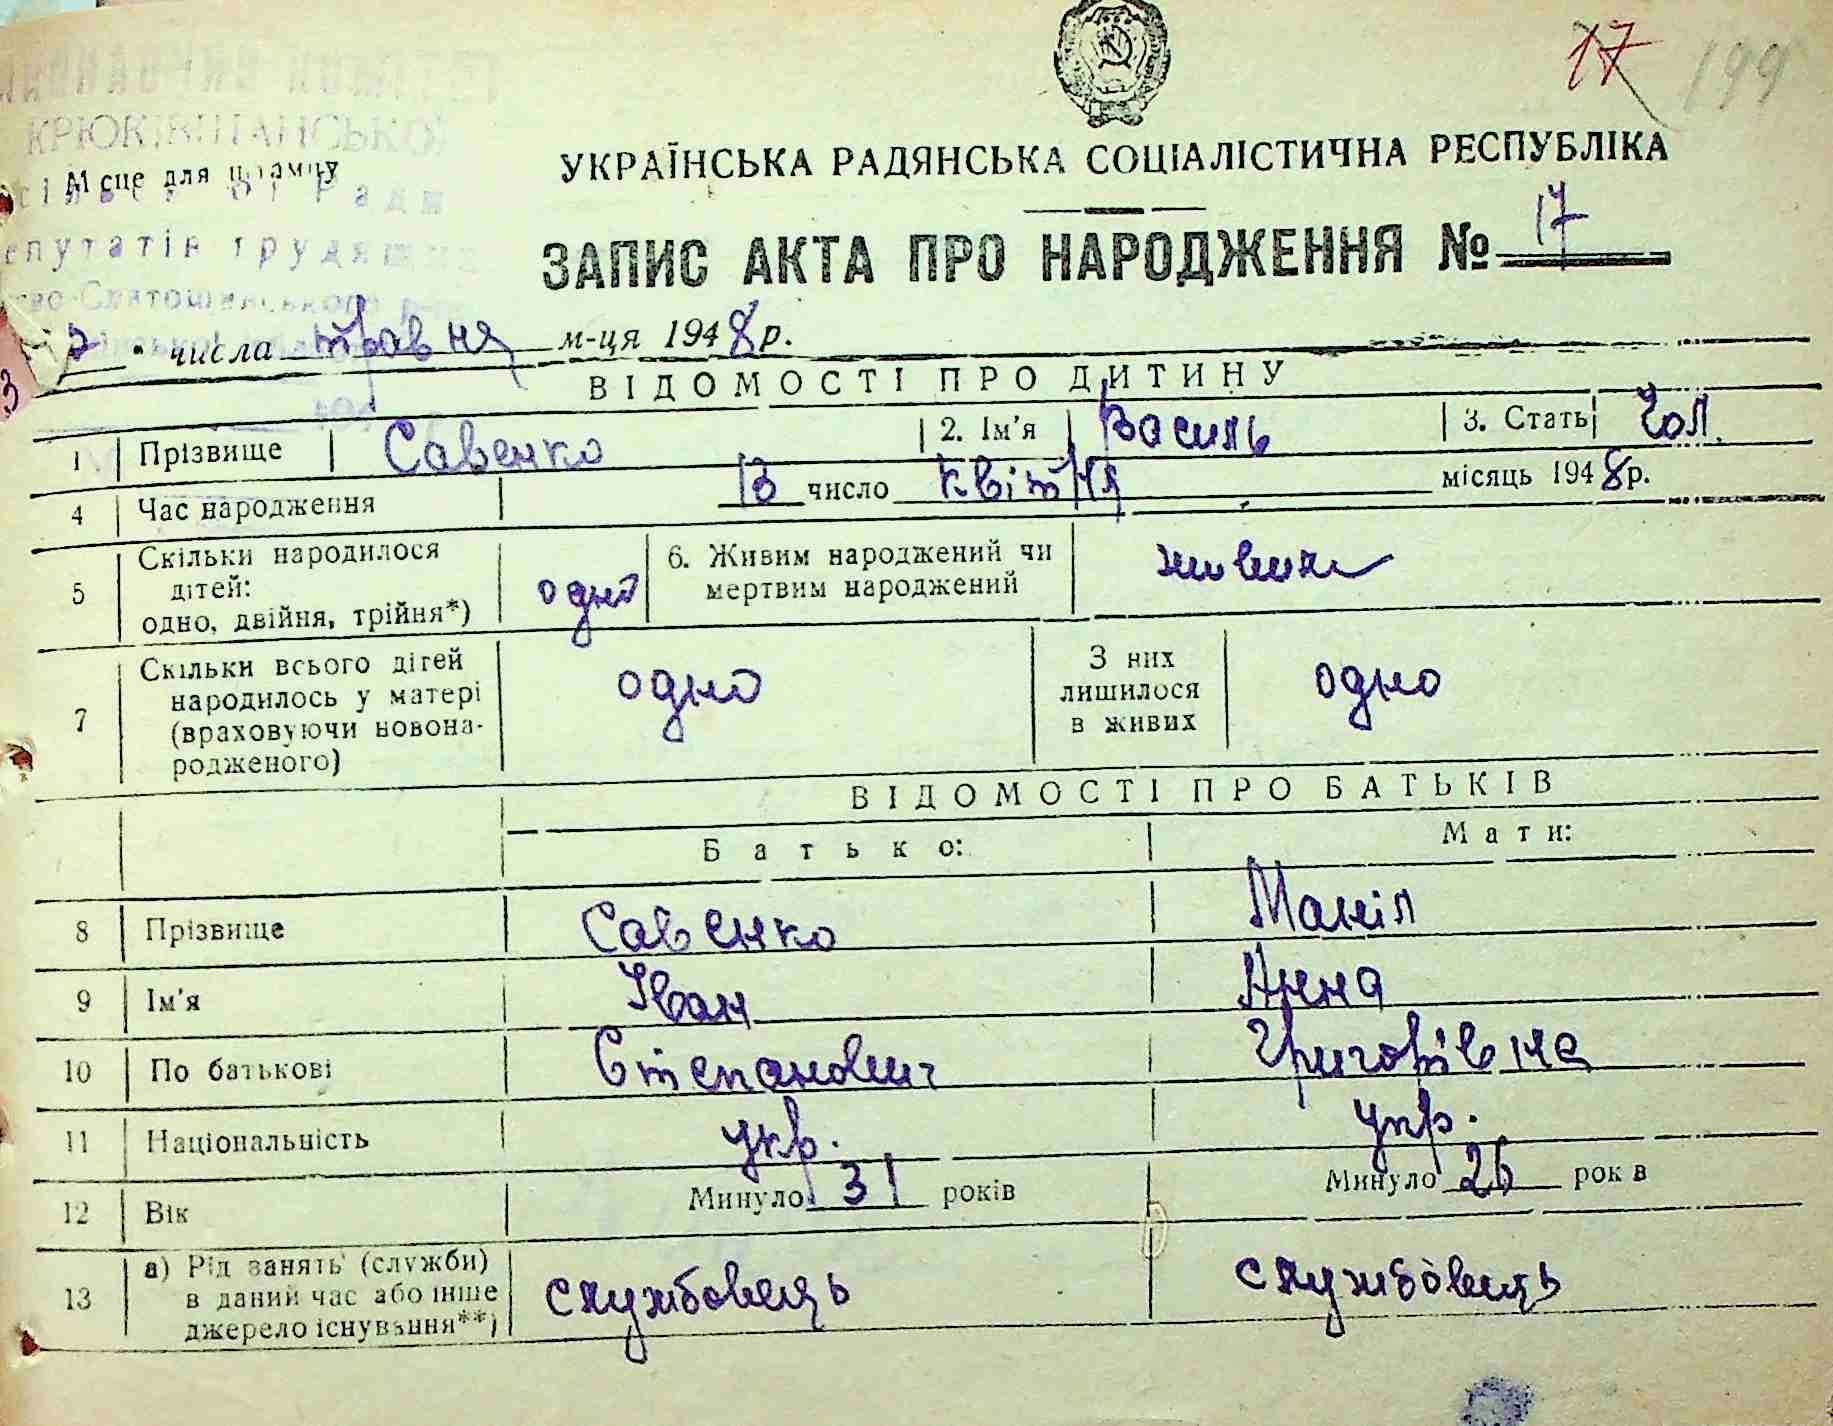 17 199
Місце для штампу
УКРАЇНСЬКА РАДЯНСЬКА СОЦІАЛІСТИЧНА РЕСПУБЛІКА
ЗАПИС АКТА ПРО НАРОДЖЕННЯ № 17
числа травня м-ця 1948 р.
ВІДОМОСТІ ПРО ДИТИНУ
1 Прізвище Савенко 2. Ім'я Василь 3. Стать Чол.
4 Час народження 13 число квітня місяць 1948 р.
5 Скільки народилося дітей: одно, двійня, трійня*) одно 6. Живим народжений чи мертвим народжений живим
7 Скільки всього дітей народилось у матері (враховуючи новонародженого) одно З них лишилося в живих одно
ВІДОМОСТІ ПРО БАТЬКІВ
Батько: Мати:
8 Прізвище Савенко Маніл
9 Ім'я Іван Анна
10 По батькові Степанович Григорівна
11 Національність укр. укр.
12 Вік Минуло 31 років Минуло 26 рок в
13 а) Рід занять (служби) в даний час або інше джерело існування**) службовець службовець